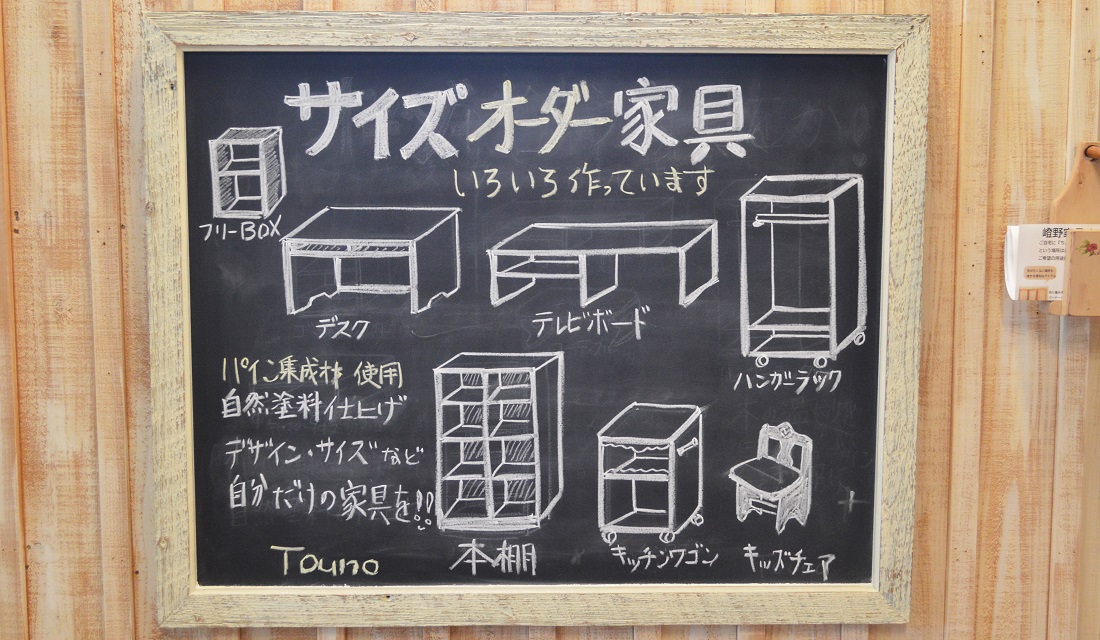 サイズオーダー家具
いろいろ作っています
フリーBOX
デスク
テレビボード
ハンガーラック
パイン集成材 使用
自然塗料仕上げ
デザイン・サイズなど
自分だけの家具を!!
本棚
キッチンワゴン
キッズチェア
Touno